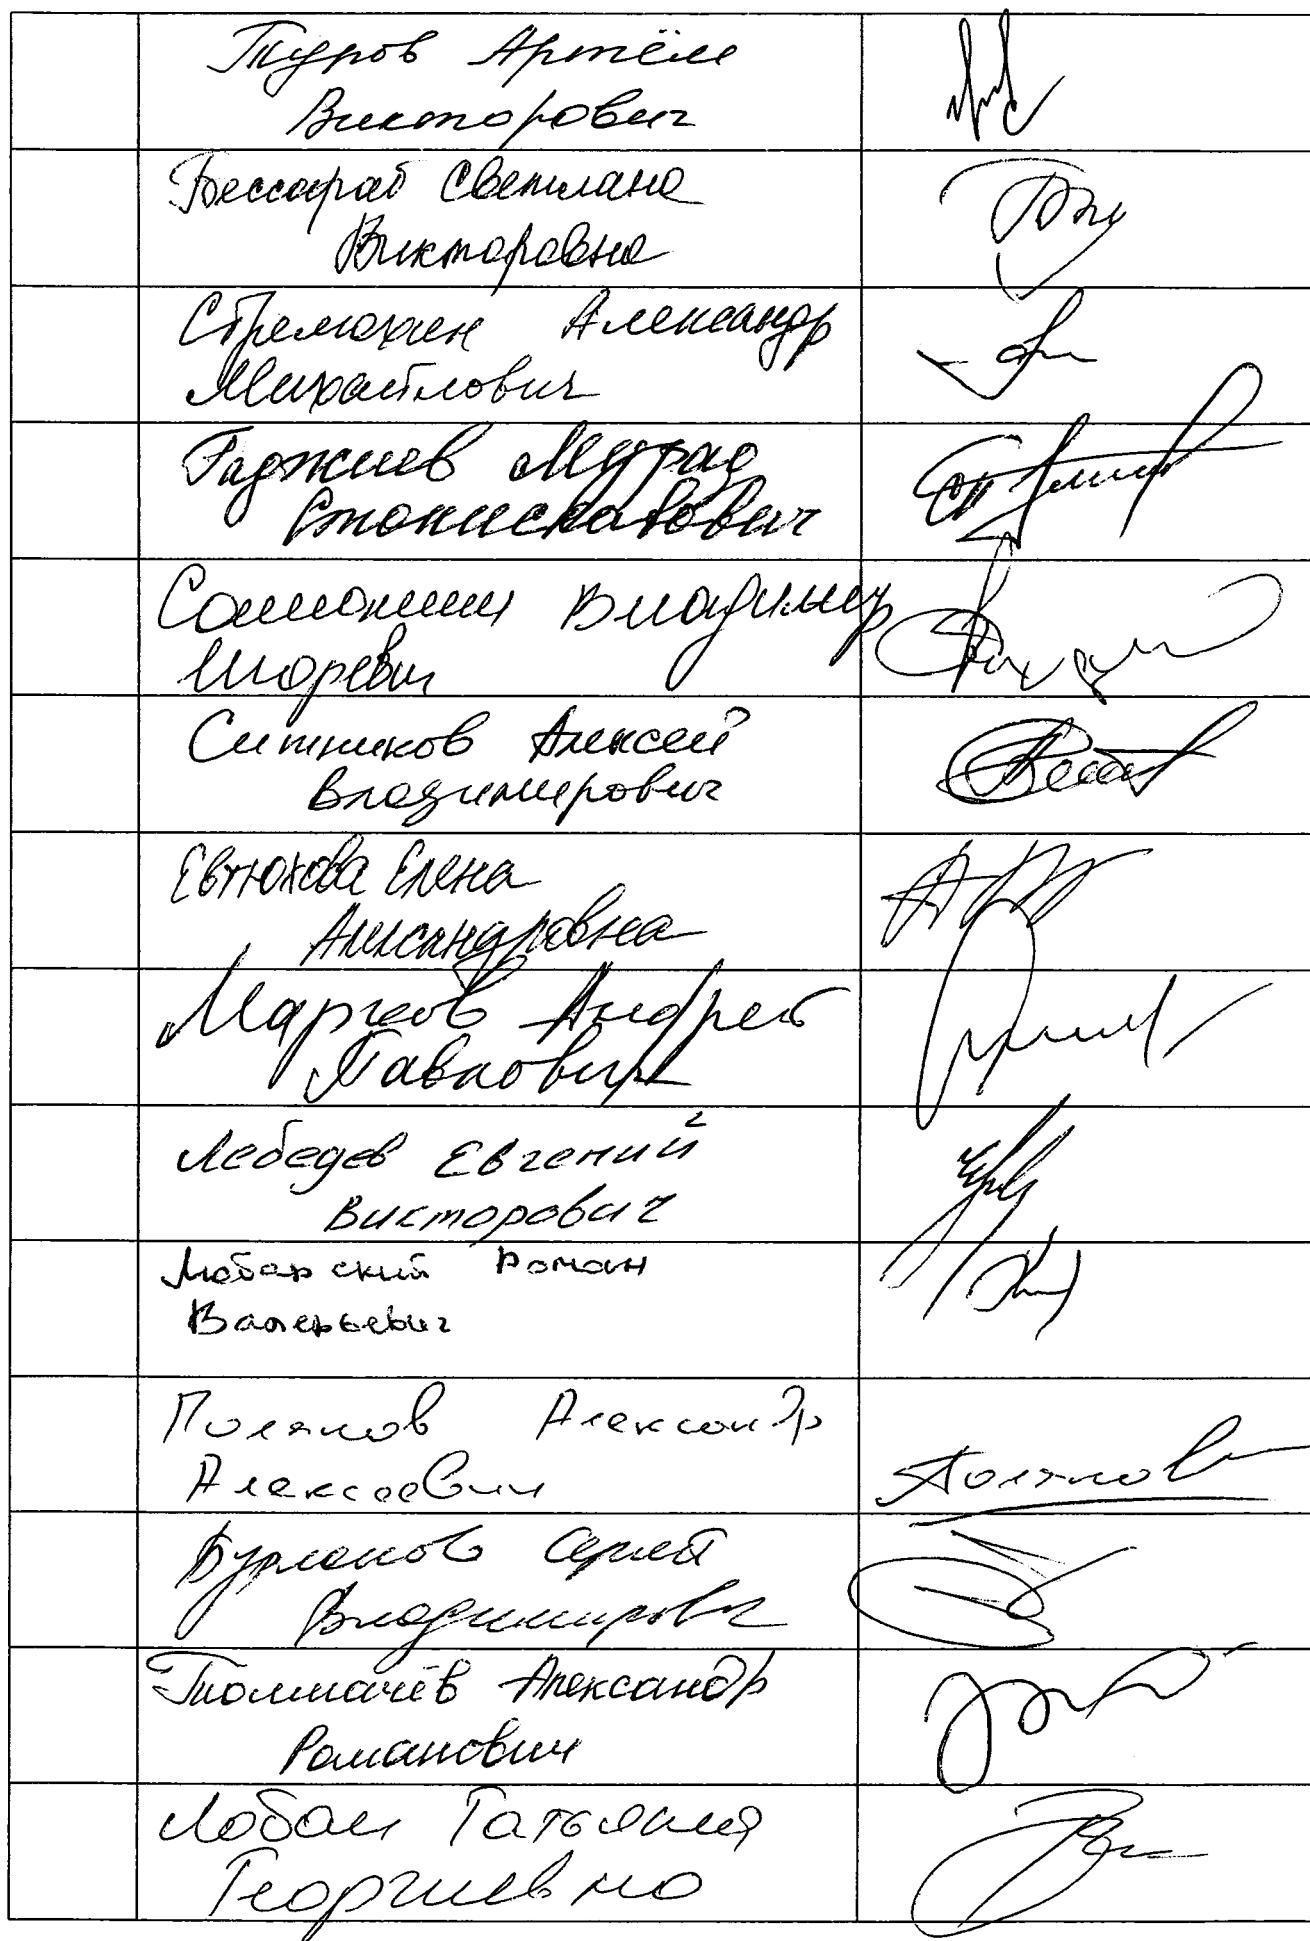 Туров Артём
Викторович
Бессараб Светлана
Викторовна
Александр
Михайлович
Гаджиев Мурад
Станиславович
Владимир
Игоревич
Ситников Алексей
Владимирович
Евтюхова Елена
Александровна
Марков Андрей
Павлович
Лебедев Евгений
Викторович
Роман
Валерьевич
Поляков Александр
Алексеевич
Поляков
Сергей
Владимирович
Толмачёв Александр
Романович
Лобач Татьяна
Георгиевна